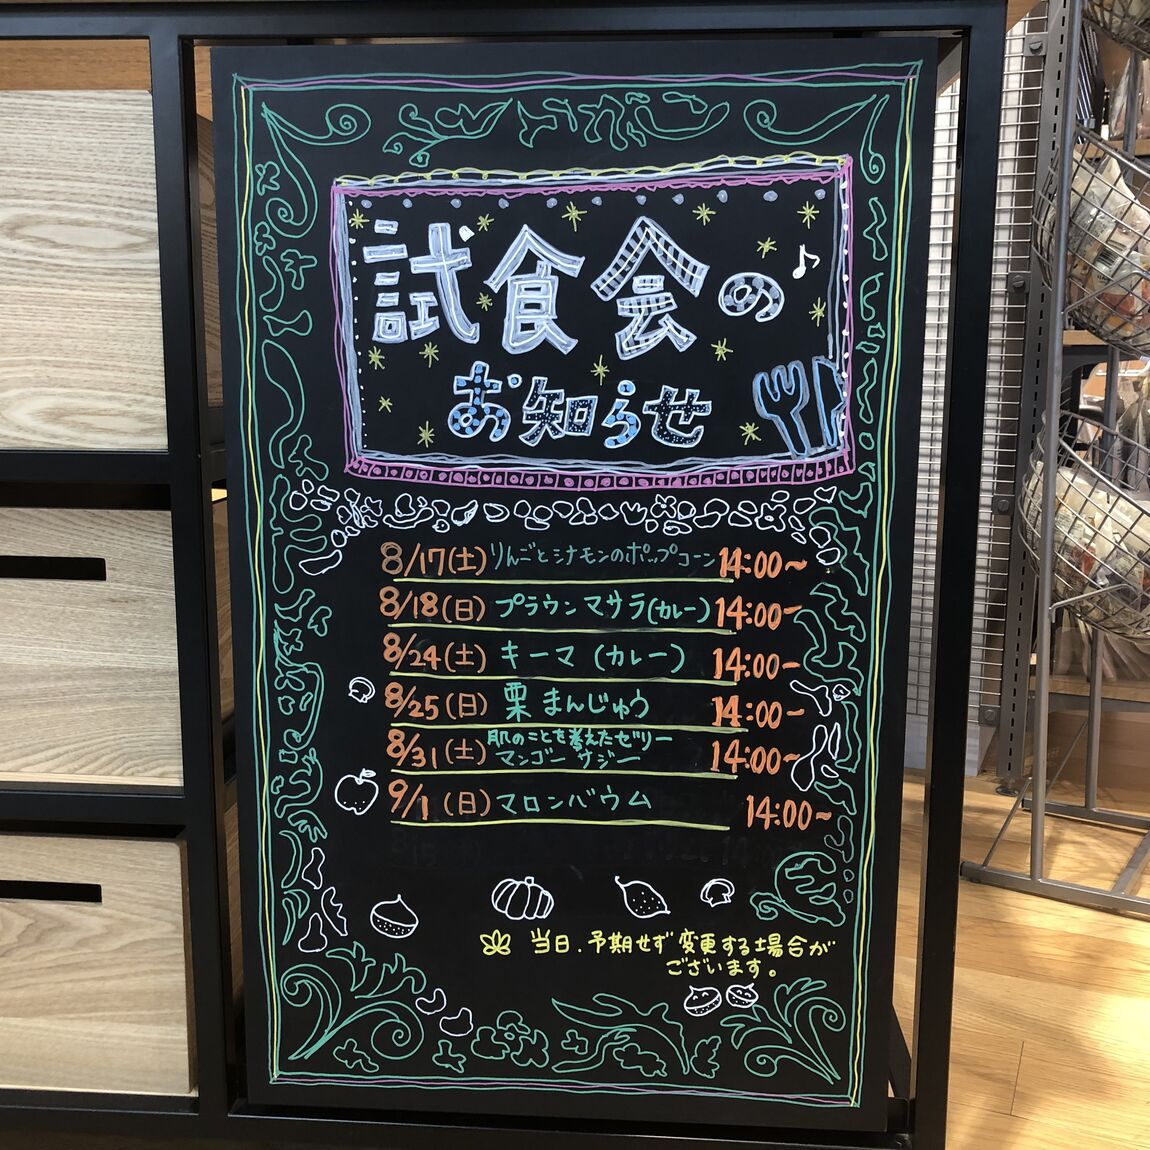 試食会の
お知らせ
8/17(土) りんごとシナモンのポップコーン 14:00~
8/18(日) プラウンマサラ(カレー) 14:00~
8/24(土) キーマ (カレー) 14:00~
8/25(日) 栗まんじゅう 14:00~
8/31(土) 肌のことを考えたゼリー
マンゴー サジー 14:00~
9/1(日) マロンバウム 14:00~
当日、予期せず変更する場合が
ございます。